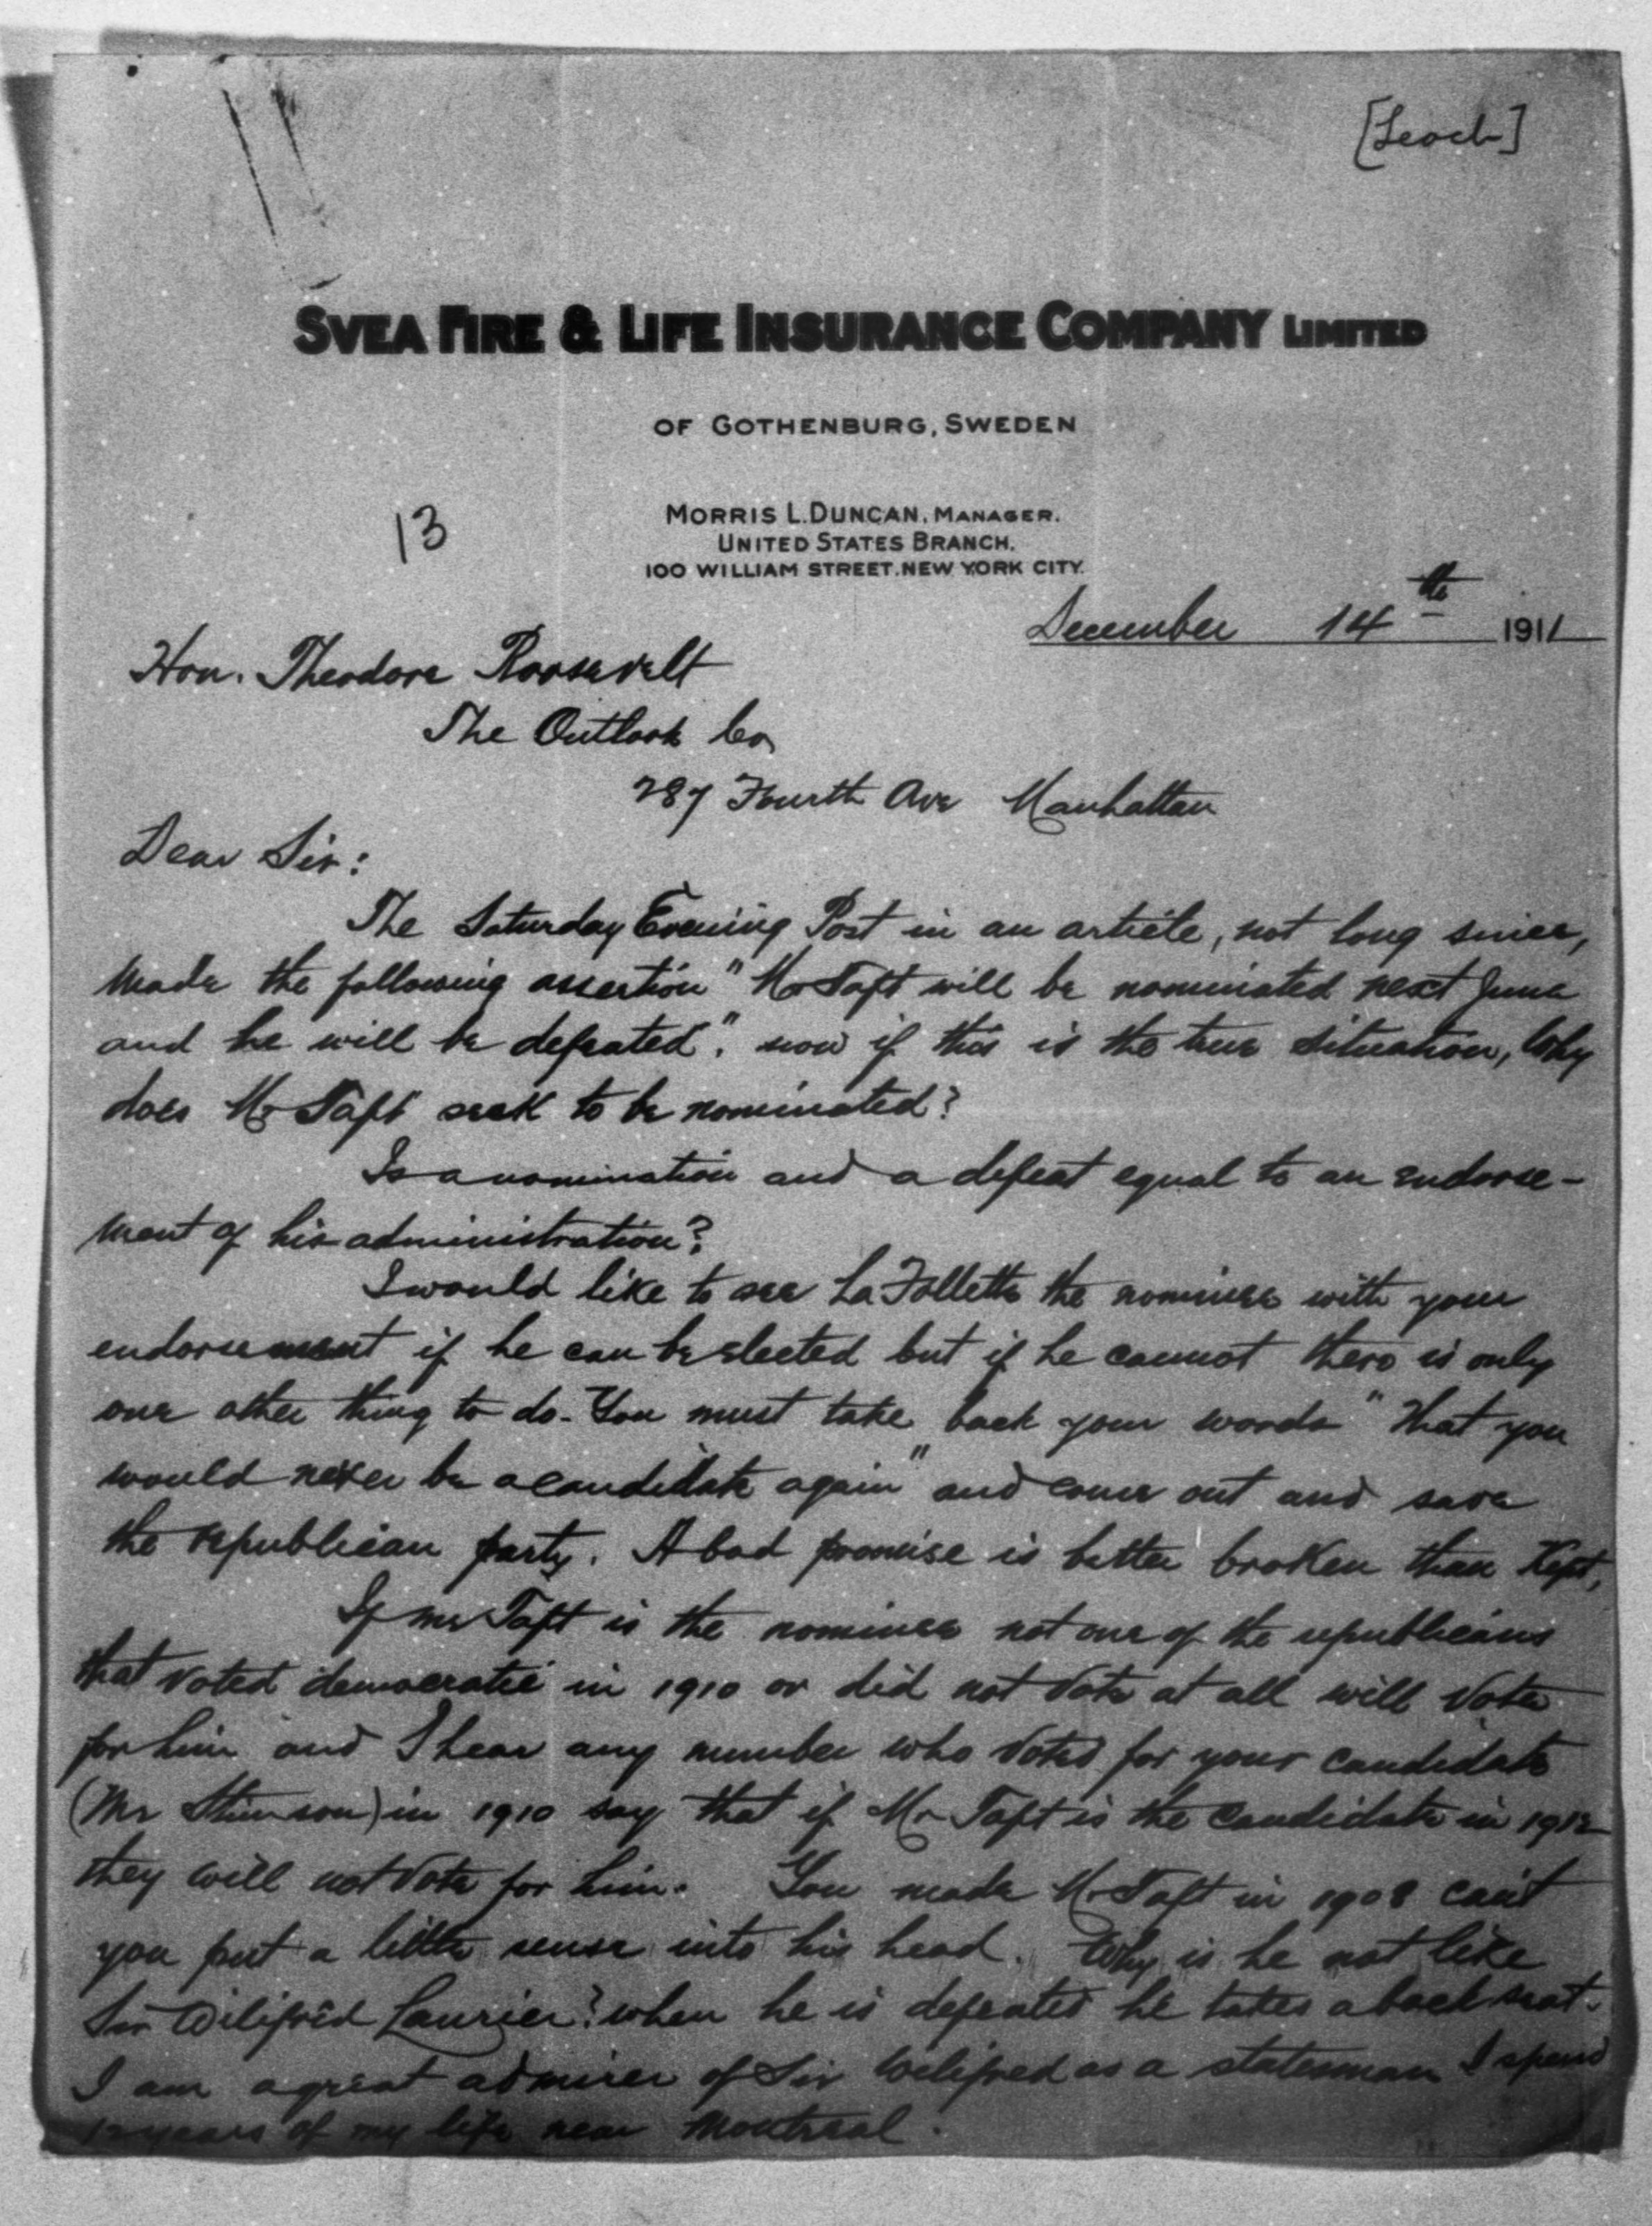 [Leoch]
SVEA FIRE & LIFE INSURANCE COMPANY LIMITED
OF GOTHENBURG, SWEDEN
13
MORRIS L. DUNCAN, MANAGER.
UNITED STATES BRANCH.
100 WILLIAM STREET. NEW YORK CITY.
December 14th 1911
Hon. Theodore Roosevelt
The Outlook Co
287 Fourth Ave Manhattan
Dear Sir:
The Saturday Evening Post in an article, not long since,
made the following assertion "Mr Taft will be nominated next June
and he will be defeated". now if this is the true situation, Why
does Mr Taft seek to be nominated?
Is a nomination and a defeat equal to an endorse-
ment of his administration?
I would like to see La Follette the nominee with your
endorsement if he can be elected but if he cannot there is only
one other thing to do. You must take back your words "That you
would never be a candidate again" and come out and save
the republican party. A bad promise is better broken than Kept.
If mr Taft is the nominee not one of the republicans
that voted democratic in 1910 or did not vote at all will vote
for him and I hear any number who voted for your candidate
(Mr Stimson) in 1910 say that if Mr Taft is the candidate in 1912
they will not vote for him. You made Mr Taft in 1908 can't
you put a little sense into his head. Why is he not like
Sir Wilifred Laurier? when he is defeated he takes a back seat.
I am a great admirer of Sir Wilifred as a statesman I spend
12 years of my life near Montreal.